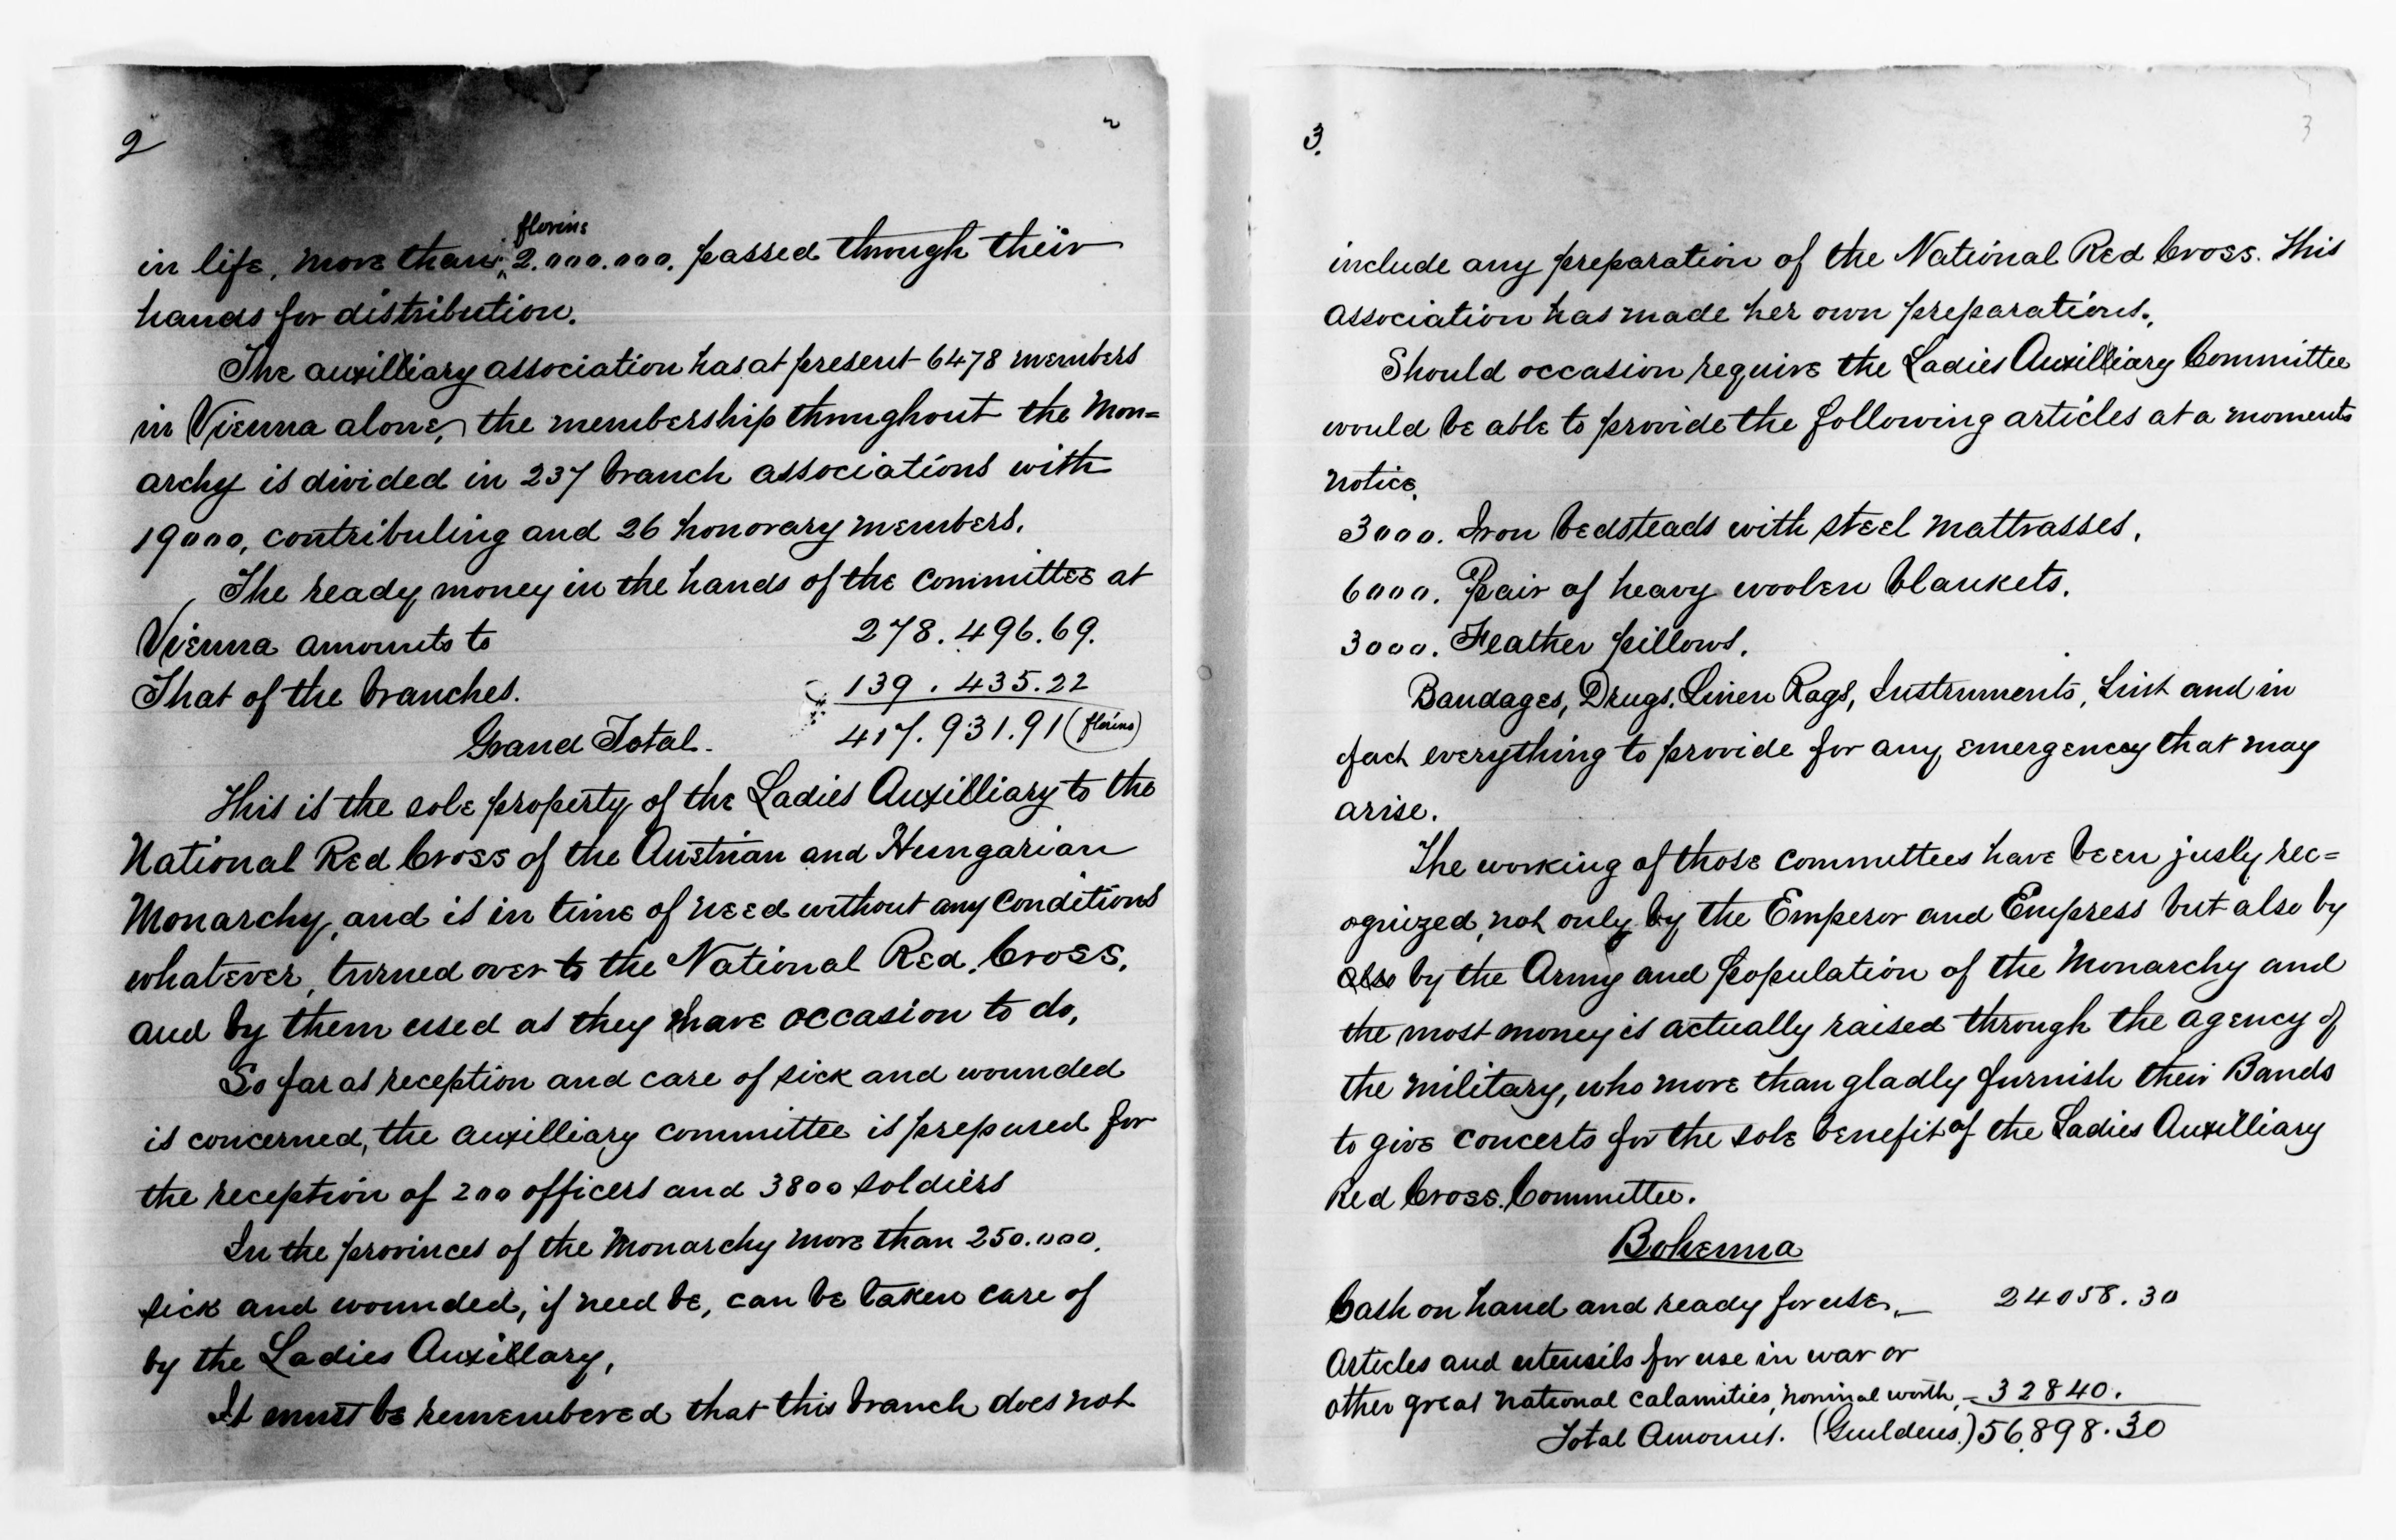 2
2
florins
in life, more than 2.000.000. passed through their
hands for distribution.
The auxilliary association has at present 6478 members
in Vienna alone, the membership throughout the Mon=
archy is divided in 237 branch associations with
19000, contributing and 26 honorary members.
The ready money in the hands of the committee at
Vienna amounts to 278.496.69.
That of the branches. 139.435.22
Grand Total. 417.931.91 (florins)
This is the sole property of the Ladies Auxilliary to the
National Red Cross of the Austrian and Hungarian
Monarchy, and is in time of need without any conditions
whatever, turned over to the National Red Cross,
and by them used as they have occasion to do,
So far as reception and care of sick and wounded
is concerned, the auxilliary committee is prepared for
the reception of 200 officers and 3800 soldiers
In the provinces of the Monarchy more than 250.000.
sick and wounded, if need be, can be taken care of
by the Ladies Auxillary,
It must be remembered that this branch does not
3.
3
include any preparation of the National Red Cross. This
association has made her own preparations.
Should occasion require the Ladies Auxilliary Committee
would be able to provide the following articles at a moments
notice.
3000. Iron bedsteads with steel mattrasses,
6000. Pair of heavy woolen blankets.
3000. Feather pillows.
Bandages, Drugs, Linen Rags, Instruments, Lint and in
fact everything to provide for any emergencey that may
arise.
The working of those committees have been jusly rec=
ognized, not only by the Emperor and Empress but also by
also by the Army and population of the Monarchy and
the most money is actually raised through the agency of
the military, who more than gladly furnish their Bands
to give concerts for the sole benefit of the Ladies Auxilliary
Red Cross. Committee.
Bohemia
Cash on hand and ready for use,— 24058.30
Articles and utensils for use in war or
other great national calamities, nominal worth, – 32840.
Total Amount. (Guldens.) 56,898.30